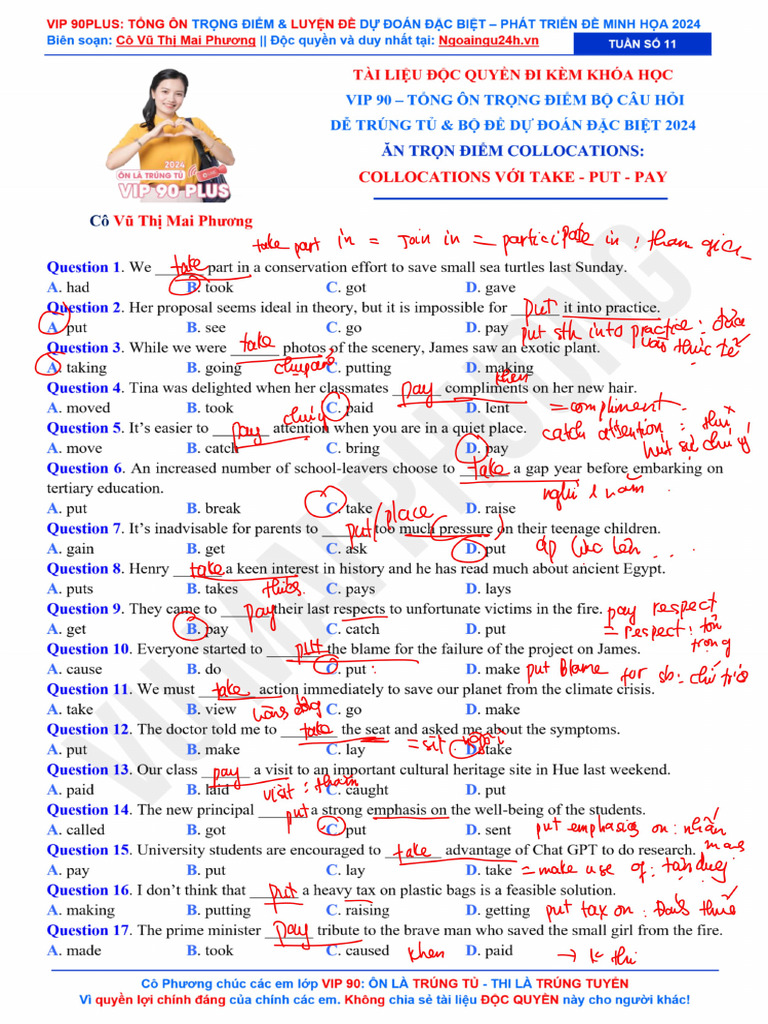 VIP 90PLUS: TỔNG ÔN TRỌNG ĐIỂM & LUYỆN ĐỀ DỰ ĐOÁN ĐẶC BIỆT – PHÁT TRIỂN ĐỀ MINH HỌA 2024
Biên soạn: Cô Vũ Thị Mai Phương || Độc quyền và duy nhất tại: Ngoaingu24h.vn
TUẦN SỐ 11
TÀI LIỆU ĐỘC QUYỀN ĐI KÈM KHÓA HỌC
VIP 90 – TỔNG ÔN TRỌNG ĐIỂM BỘ CÂU HỎI
DỄ TRÚNG TỦ & BỘ ĐỀ DỰ ĐOÁN ĐẶC BIỆT 2024
ĂN TRỌN ĐIỂM COLLOCATIONS:
COLLOCATIONS VỚI TAKE - PUT - PAY
2024
ÔN LÀ TRÚNG TỦ
VIP 90 PLUS
Cô Vũ Thị Mai Phương
take part in = join in = participate in : tham gia
Question 1. We take part in a conservation effort to save small sea turtles last Sunday.
A. had B. took C. got D. gave
Question 2. Her proposal seems ideal in theory, but it is impossible for put it into practice.
A. put B. see C. go D. pay put sth into practice : đưa
vào thực tế
Question 3. While we were take photos of the scenery, James saw an exotic plant.
A. taking B. going C. putting D. making
khen
Question 4. Tina was delighted when her classmates pay compliments on her new hair.
A. moved B. took C. paid D. lent = compliment
chú ý
Question 5. It’s easier to pay attention when you are in a quiet place. catch attention : thu
hút sự chú ý
A. move B. catch C. bring D. pay
Question 6. An increased number of school-leavers choose to take a gap year before embarking on
tertiary education. nghỉ 1 năm
A. put B. break C. take D. raise
Question 7. It’s inadvisable for parents to put / place too much pressure on their teenage children.
A. gain B. get C. ask D. put áp lực lên ...
Question 8. Henry take a keen interest in history and he has read much about ancient Egypt.
A. puts B. takes thích C. pays D. lays
Question 9. They came to pay their last respects to unfortunate victims in the fire. pay respect
A. get B. pay C. catch D. put = respect : tôn
trọng
Question 10. Everyone started to put the blame for the failure of the project on James.
A. cause B. do C. put D. make put blame for sb : chỉ trích
Question 11. We must take action immediately to save our planet from the climate crisis.
A. take B. view hành động C. go D. make
Question 12. The doctor told me to take the seat and asked me about the symptoms.
A. put B. make C. lay = sit ngồi D. take
Question 13. Our class pay a visit to an important cultural heritage site in Hue last weekend.
A. paid B. laid visit : thăm C. caught D. put
Question 14. The new principal put a strong emphasis on the well-being of the students.
A. called B. got C. put D. sent put emphasis on : nhấn
mạnh
Question 15. University students are encouraged to take advantage of Chat GPT to do research.
A. pay B. put C. lay D. take = make use of : tận dụng
Question 16. I don’t think that put a heavy tax on plastic bags is a feasible solution.
A. making B. putting C. raising D. getting put tax on : đánh thuế
Question 17. The prime minister pay tribute to the brave man who saved the small girl from the fire.
A. made B. took C. caused khen D. paid
Cô Phương chúc các em lớp VIP 90: ÔN LÀ TRÚNG TỦ - THI LÀ TRÚNG TUYỂN
Vì quyền lợi chính đáng của chính các em. Không chia sẻ tài liệu ĐỘC QUYỀN này cho người khác!